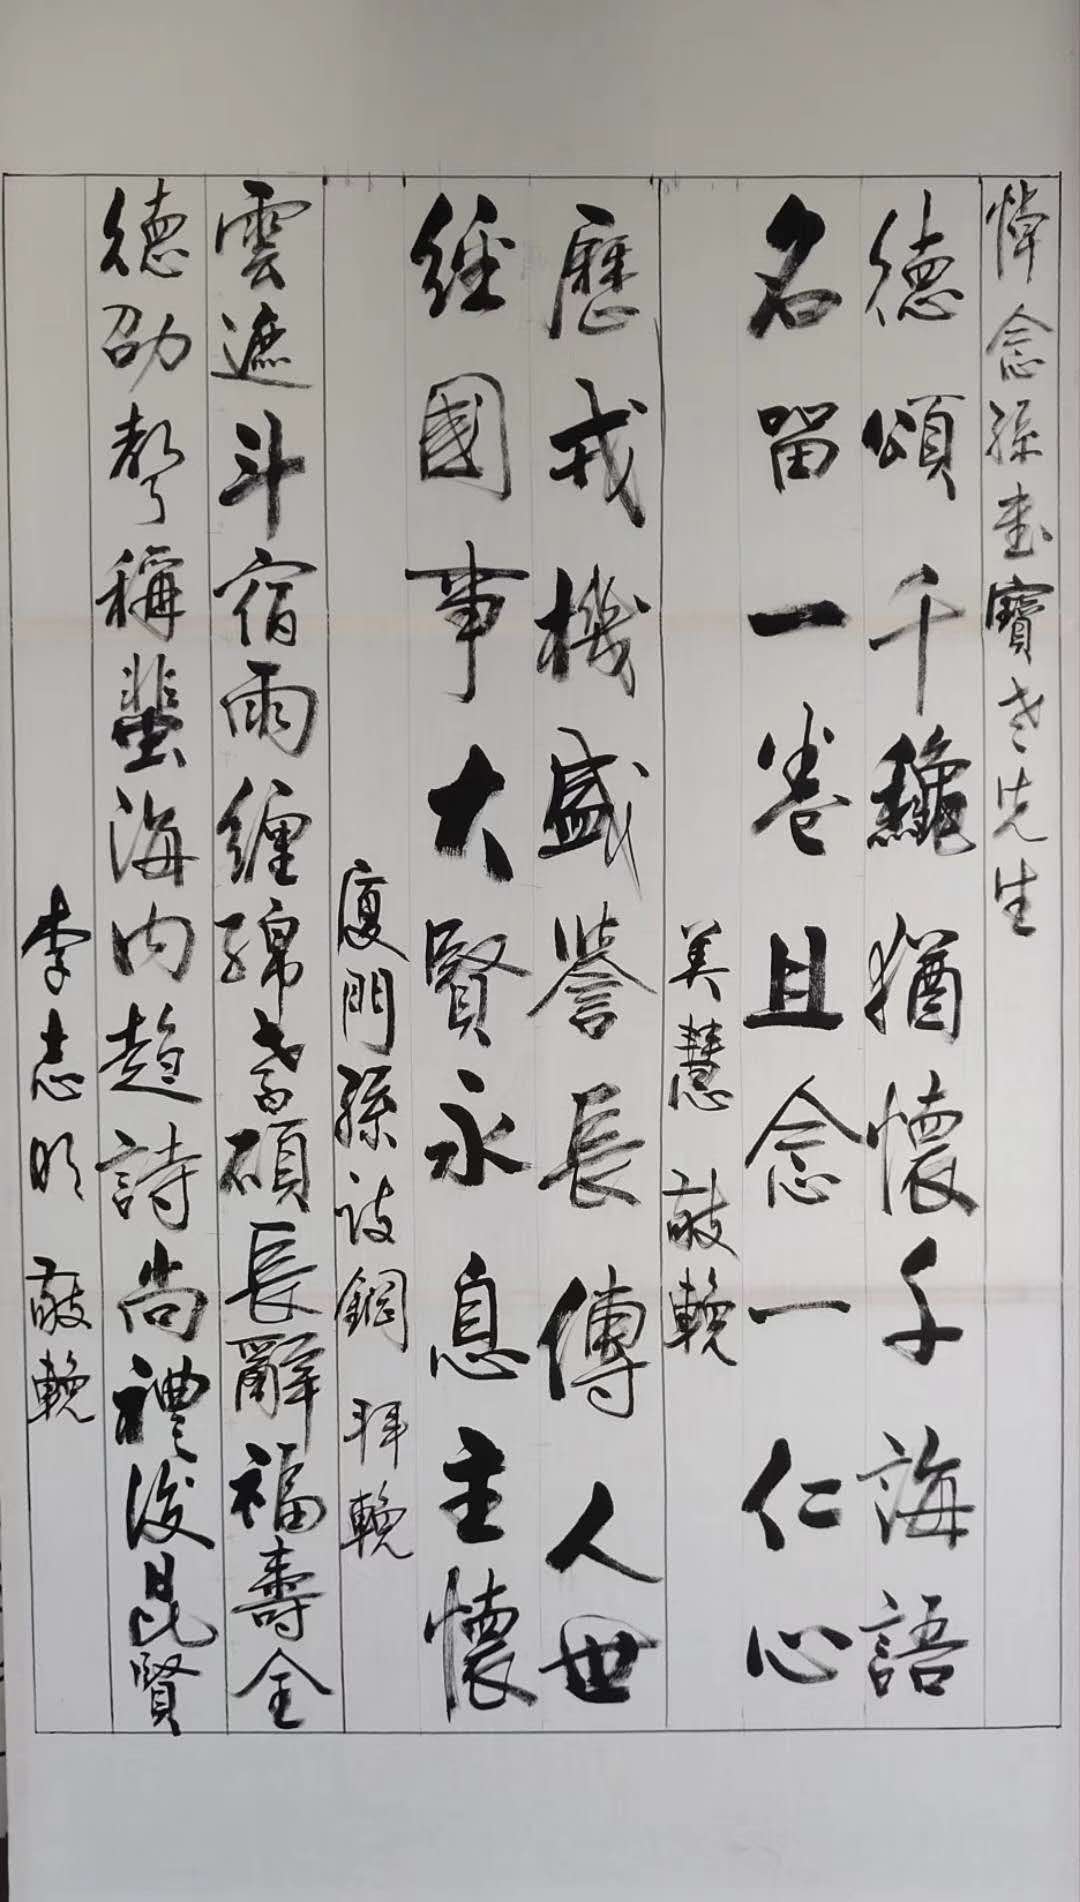 悼念孫寶老先生
德頌千龝猶懷千誨語
名留一卷且念一仁心
美慧 敬輓
歷戎機盛譽長傳人世
經國事大賢永息主懷
廈門孫鋼 拜輓
雲遮斗宿雨纏綿耆碩長辭福壽全
德劭聲稱蜚海內趨詩尚禮後昆賢
李志明 敬輓